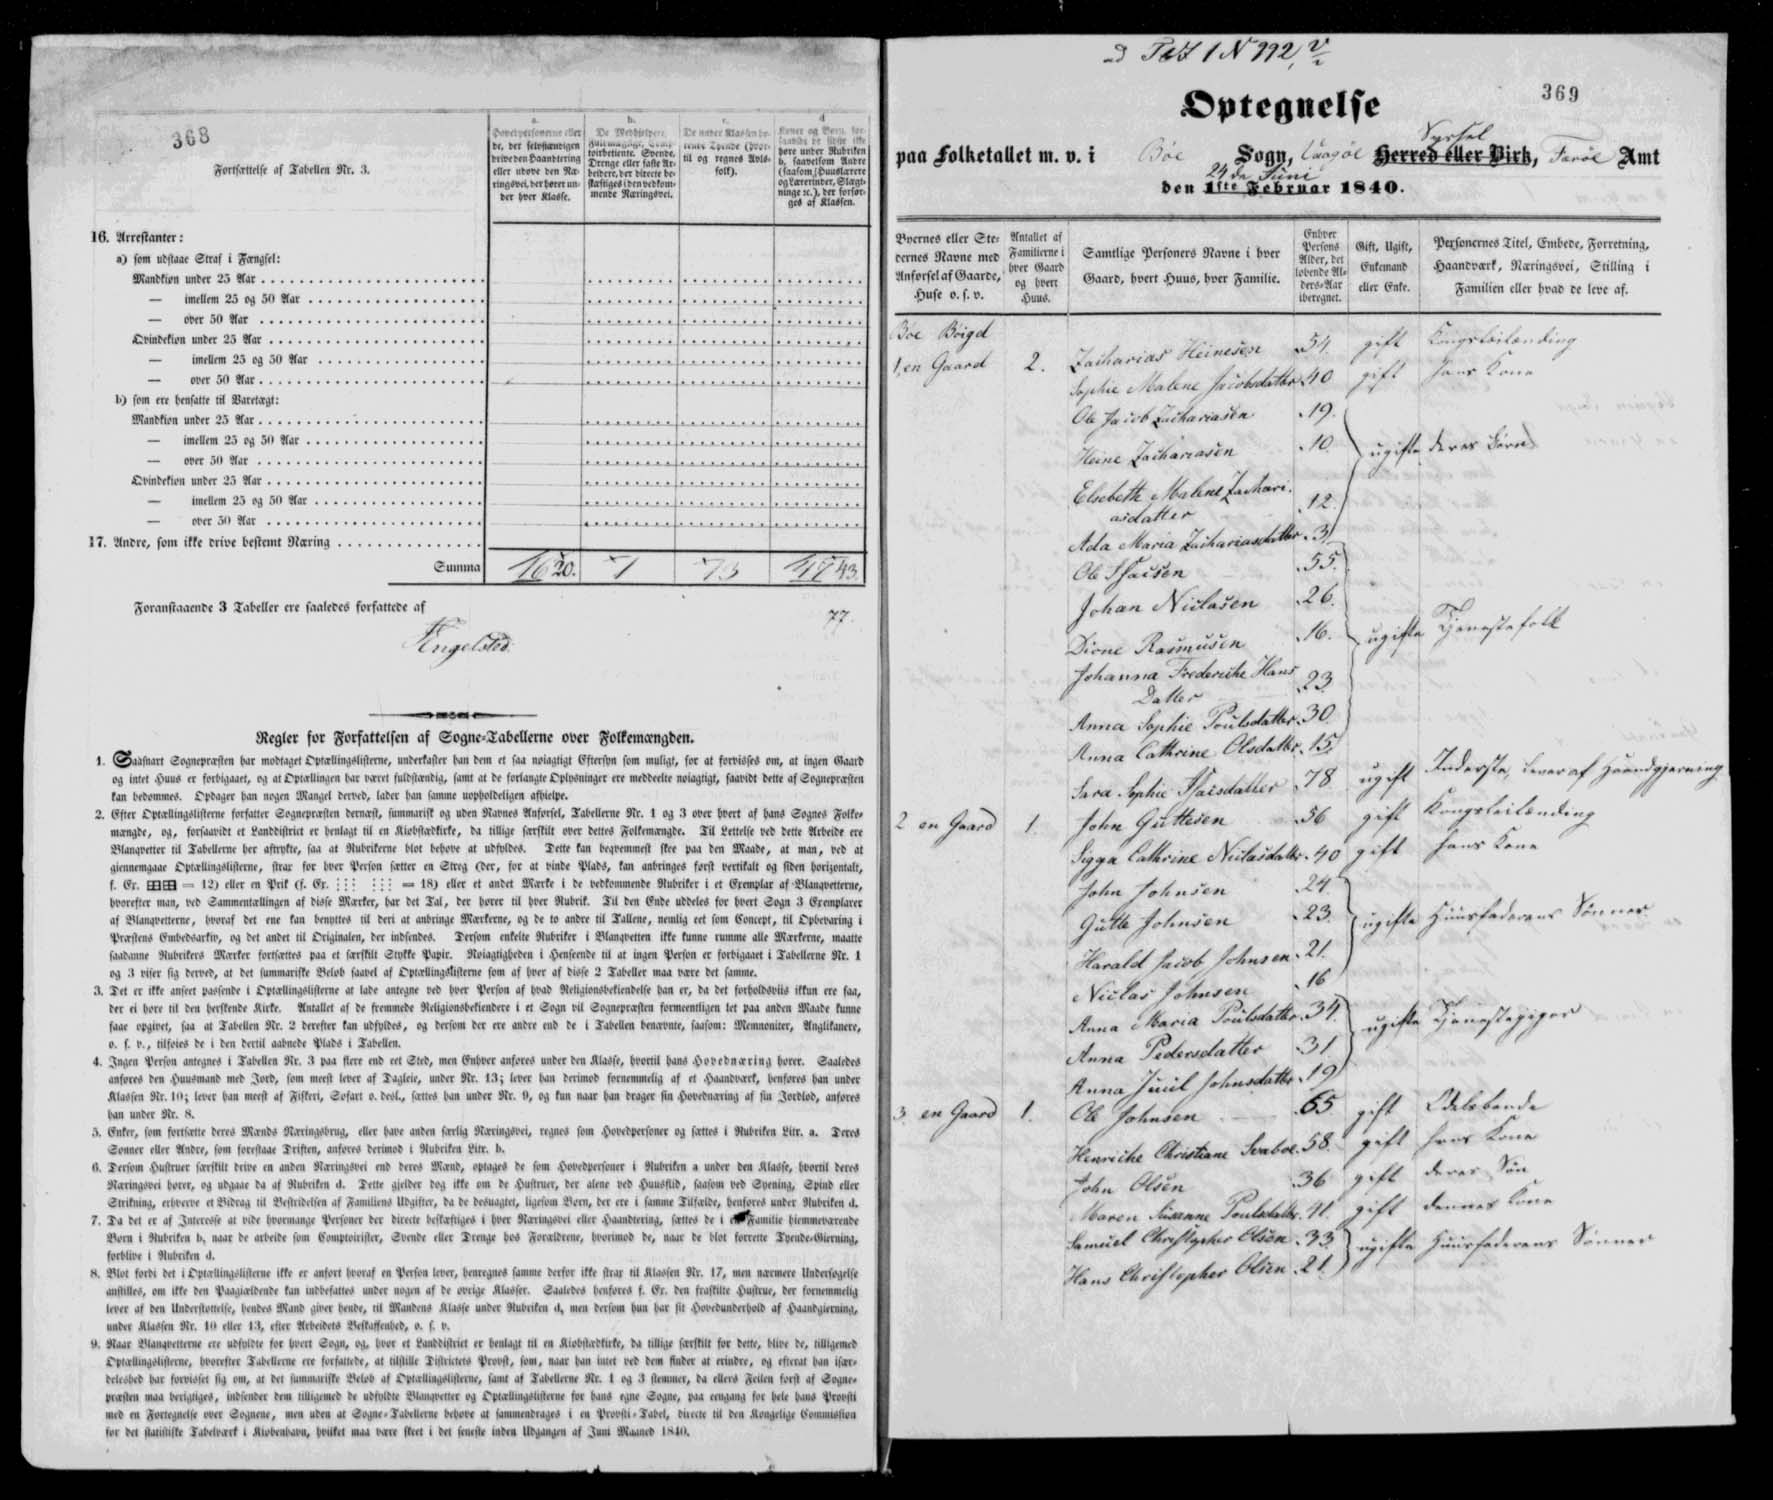 368
Fortsættelse af Tabellen Nr. 3.
a.
Hovedpersonerne eller
de, der selvstændigen
drive den Haandtering
eller udøve den Næ-
ringsvei, der hører un-
der hver Klasse.
b.
De Medhjelpere,
toirbetiente, Svende,
Drenge eller faste Ar-
beidere, der directe be-
skæftiges i den vedkom-
mende Næringsvei.
c.
De under Klassen hø-
rende Tyende (hvor-
til og regnes Avls-
folk).
d
Koner og Børn, for-
saavidt de sidste ikke
høre under Rubriken
b, saavelsom Andre
(saasom Huuslærere
og Lærerinder, Slægt-
ninge ec.), der forsør-
ges af Klassen.
16. Arrestanter:
a) som udstaae Straf i Fængsel:
Mandkiøn under 25 Aar
— imellem 25 og 50 Aar
— over 50 Aar
Qvindekiøn under 25 Aar
— imellem 25 og 50 Aar
— over 50 Aar
b) som ere hensatte til Varetægt:
Mandkiøn under 25 Aar
— imellem 25 og 50 Aar
— over 50 Aar
Qvindekiøn under 25 Aar
— imellem 25 og 50 Aar
— over 50 Aar
17. Andre, som ikke drive bestemt Næring
Summa 20. 1 13 43
Foranstaaende 3 Tabeller ere saaledes forfattede af
77.
Engelsted.
Regler for Forfattelsen af Sogne-Tabellerne over Folkemængden.
1. Saasnart Sognepræsten har modtaget Optællingslisterne, underkaster han dem et saa nøiagtigt Eftersyn som muligt, for at forvisses om, at ingen Gaard
og intet Huus er forbigaaet, og at Optællingen har været fuldstændig, samt at de forlangte Oplysninger ere meddeelte nøiagtigt, saavidt dette af Sognepræsten
kan bedømmes. Opdager han nogen Mangel derved, lader han samme uopholdeligen afhielpe.
2. Efter Optællingslisterne forfatter Sognepræsten dernæst, summarisk og uden Navnes Anførsel, Tabellerne Nr. 1 og 3 over hvert af hans Sognes Folke-
mængde, og, forsaavidt et Landdistrict er henlagt til en Kiøbstædkirke, da tillige særskilt over dettes Folkemængde. Til Lettelse ved dette Arbeide ere
Blanqvetter til Tabellerne her aftrykte, saa at Rubrikerne blot behøve at udfyldes. Dette kan beqvemmest skee paa den Maade, at man, ved at
giennemgaae Optællingslisterne, strax for hver Person sætter en Streg (der, for at vinde Plads, kan anbringes først vertikalt og siden horizontalt,
f. Ex. = 12) eller en Prik (f. Ex. = 18) eller et andet Mærke i de vedkommende Rubriker i et Exemplar af Blanqvetterne,
hvorefter man, ved Sammentællingen af disse Mærker, har det Tal, der hører til hver Rubrik. Til den Ende uddeles for hvert Sogn 3 Exemplarer
af Blanqvetterne, hvoraf det ene kan benyttes til deri at anbringe Mærkerne, og de to andre til Tallene, nemlig eet som Concept, til Opbevaring i
Præstens Embedsarkiv, og det andet til Originalen, der indsendes. Dersom enkelte Rubriker i Blanqvetten ikke kunne rumme alle Mærkerne, maatte
saadanne Rubrikers Mærker fortsættes paa et særskilt Stykke Papir. Nøiagtigheden i Henseende til at ingen Person er forbigaaet i Tabellerne Nr. 1
og 3 viser sig derved, at det summariske Beløb saavel af Optællingslisterne som af hver af disse 2 Tabeller maa være det samme.
3. Det er ikke anseet passende i Optællingslisterne at lade antegne ved hver Person af hvad Religionsbekiendelse han er, da det forholdsviis ikkun ere faa,
der ei høre til den herskende Kirke. Antallet af de fremmede Religionsbekiendere i et Sogn vil Sognepræsten formeentligen let paa anden Maade kunne
faae opgivet, saa at Tabellen Nr. 2 derefter kan udfyldes, og dersom der ere andre end de i Tabellen benævnte, saasom: Memnoniter, Anglikanere,
o. s. v., tilføies de i den dertil aabnede Plads i Tabellen.
4. Ingen Person antegnes i Tabellen Nr. 3 paa flere end eet Sted, men Enhver anføres under den Klasse, hvortil hans Hovednæring hører. Saaledes
anføres den Huusmand med Jord, som meest lever af Dagleie, under Nr. 13; lever han derimod fornemmelig af et Haandværk, henføres han under
Klassen Nr. 10; lever han meest af Fiskeri, Søfart o. desl., sættes han under Nr. 9, og kun naar han drager sin Hovednæring af sin Jordlod, anføres
han under Nr. 8.
5. Enker, som fortsætte deres Mænds Næringsbrug, eller have anden særlig Næringsvei, regnes som Hovedpersoner og sættes i Rubriken Litr. a. Deres
Sønner eller Andre, som forestaae Driften, anføres derimod i Rubriken Litr. b.
6. Dersom Hustruer særskilt drive en anden Næringsvei end deres Mænd, optages de som Hovedpersoner i Rubriken a under den Klasse, hvortil deres
Næringsvei hører, og udgaae da af Rubriken d. Dette gjelder dog ikke om de Hustruer, der alene ved Huusflid, saasom ved Syening, Spind eller
Strikning, erhverve et Bidrag til Bestridelsen af Familiens Udgifter, da de desuagtet, ligesom Børn, der ere i samme Tilfælde, henføres under Rubriken d.
7. Da det er af Interesse at vide hvormange Personer der directe beskæftiges i hver Næringsvei eller Haandtering, sættes de i en Familie hiemmeværende
Børn i Rubriken b, naar de arbeide som Comptoirister, Svende eller Drenge hos Forældrene, hvorimod de, naar de blot forrette Tyende-Gierning,
forblive i Rubriken d.
8. Blot fordi det i Optællingslisterne ikke er anført hvoraf en Person lever, henregnes samme derfor ikke strax til Klassen Nr. 17, men nærmere Undersøgelse
anstilles, om ikke den Paagiældende kan indbefattes under nogen af de øvrige Klasser. Saaledes henføres f. Ex. den fraskilte Hustrue, der fornemmelig
lever af den Understøttelse, hendes Mand giver hende, til Mandens Klasse under Rubriken d, men dersom hun har sit Hovedunderhold af Haandgierning,
under Klassen Nr. 10 eller 13, efter Arbeidets Beskaffenhed, o. s. v.
9. Naar Blanqvetterne ere udfyldte for hvert Sogn, og, hvor et Landdistrict er henlagt til en Kiøbstædkirke, da tillige særskilt for dette, blive de, tilligemed
Optællingslisterne, hvorefter Tabellerne ere forfattede, at tilstille Districtets Provst, som, naar han intet ved dem finder at erindre, og efterat han især-
deleshed har forvisset sig om, at det summariske Beløb af Optællingslisterne, samt af Tabellerne Nr. 1 og 3 stemmer, da ellers Feilen først af Sogne-
præsten maa berigtiges, indsender dem tilligemed de udfyldte Blanqvetter og Optællingslisterne for hans egne Sogne, paa eengang for hele hans Provsti
med en Fortegnelse over Sognene, men uden at Sogne-Tabellerne behøve at sammendrages i en Provsti-Tabel, directe til den Kongelige Commission
for det statistiske Tabelværk i Kiøbenhavn, hvilket maa være skeet i det seneste inden Udgangen af Juni Maaned 1840.
369
Optegnelse
Syssel
paa Folketallet m. v. i Bøe Sogn, Vaagøe Herred eller Birk, Farøe Amt
24de Juni
den 1ste Februar 1840.
Byernes eller Ste-
dernes Navne med
Anførsel af Gaarde,
Huse o. s. v.
Antallet af
Familierne i
hver Gaard
og hvert
Huus.
Samtlige Personers Navne i hver
Gaard, hvert Huus, hver Familie.
Enhver
Persons
Alder, det
løbende Al-
ders-Aar
iberegnet.
Gift, Ugift,
Enkemand
eller Enke.
Personernes Titel, Embede, Forretning,
Haandværk, Næringsvei, Stilling i
Familien eller hvad de leve af.
Bøe Bøigd
1, en Gaard 2. Zacharias Heinesen 54. gift Kongsleilænding
Sophie Malene Jacobsdatter 40 gift hans Kone
Ole Jacob Zachariasen 19.
Heine Zachariasen 10. ugifte deres Børn
Elsebeth Malene Zachari-
asdatter 12.
Ada Maria Zachariasdatter 3
Ole Isacsen 55.
Johan Niclasen 26.
Dione Rasmusen 16. ugifte Tjenestefolk
Johanna Frederiche Hans
Datter 23
Anna Sophie Poulsdatter 30.
Anna Cathrine Olsdatter 15.
Sara Sophie Isacsdatter 78 ugift Inderste, lever af Haandgjerning
2 en Gaard 1. John Guttesen 56 gift Kongsleilænding
Sigga Cathrine Niclasdatter 40 gift hans Kone
John Johnsen 24.
Gutte Johnsen 23. ugifte Huusfaderens Sønner
Harald Jacob Johnsen 21.
Niclas Johnsen 16
Anna Maria Poulsdatter 34. ugifte Tjenestepiger
Anna Pedersdatter 31
Anna Juul Johnsdatter 19
3. en Gaard 1. Ole Johnsen 65. gift Odelsbonde
Henriche Christiane Svaboe 58. gift hans Kone
John Olsen 36 gift deres Søn
Maren Susanne Poulsdatter 41. gift dennes Kone
Samuel Christopher Olsen 33. ugifte Huusfaderens Sønner
Hans Christopher Olsen 21.